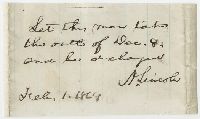 Let this man take
the oath of Dec. 8.
and be discharged
A. Lincoln
Feb. 1. 1864